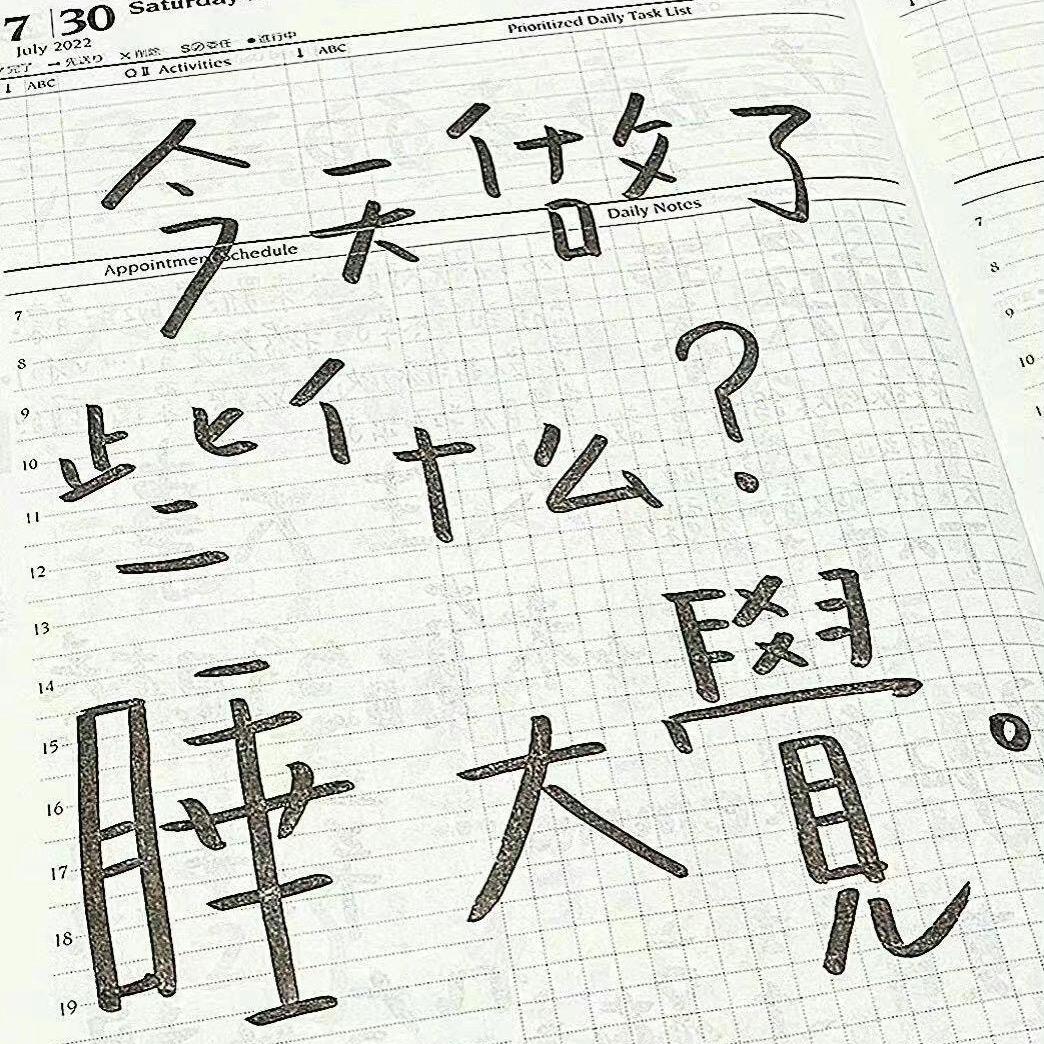 7 30 Saturday
July 2022
完了 → 先送り × 削除 Sの委任 ● 進行中
↓ ABC Q II Activities ↓ ABC Prioritized Daily Task List
今天做了
Appointment Schedule Daily Notes
些什么?
睡大覺。
7
8
9
10
11
12
13
14
15
16
17
18
19
7
8
9
10